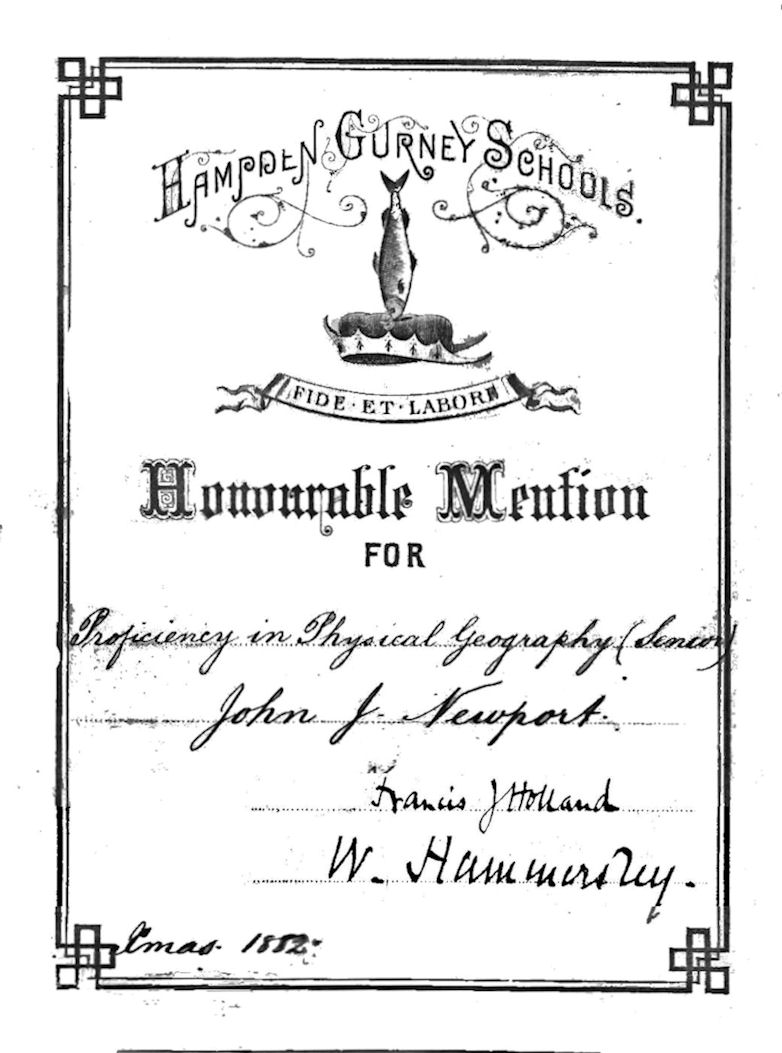 HAMPDEN GURNEY SCHOOLS.
FIDE · ET · LABORE
Honourable Mention
FOR
Proficiency in Physical Geography (Senior)
John J. Newport.
Francis J Holland
W. Hammersley.
Xmas. 1882.